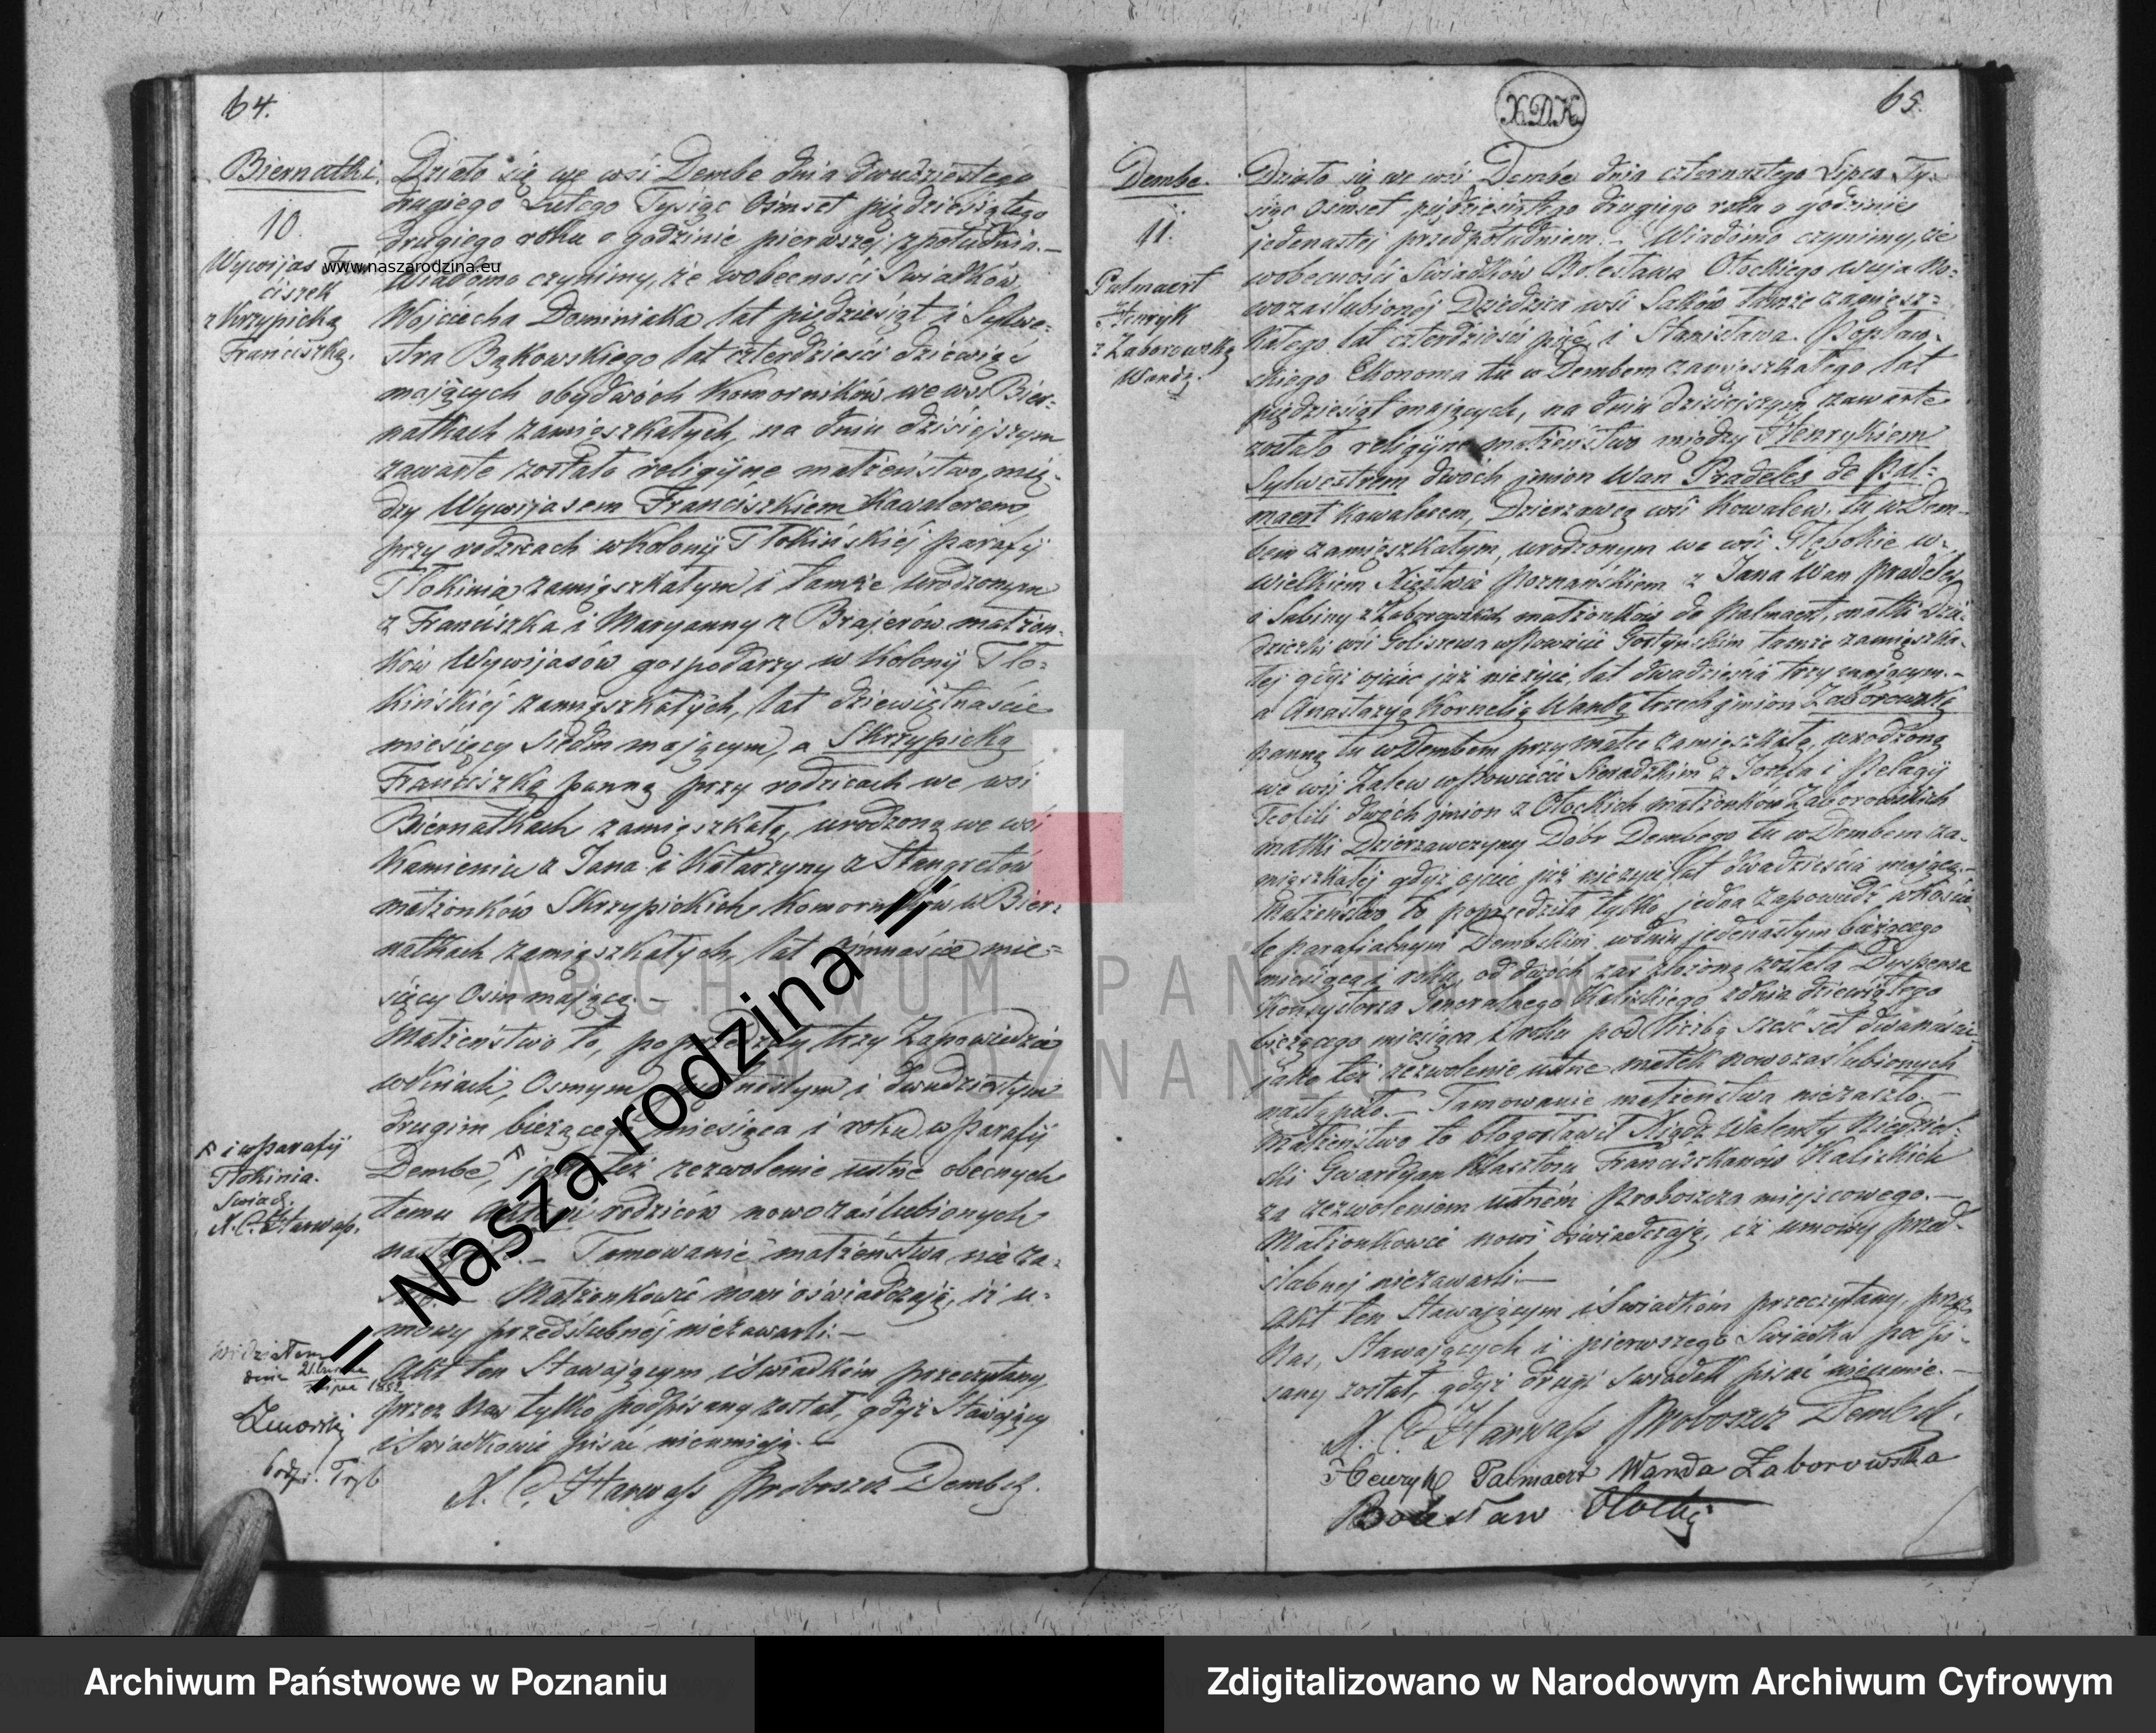 64.
Biernatki.
10.
Wywijas Fran
ciszek
z Skrzypicką
Franciszką.
www.naszarodzina.eu
Działo się we wsi Dembe dnia dwudziestego
drugiego Lutego Tysiąc Ośmset pięćdziesiątego
drugiego roku o godzinie pierwszej z południa.—
Wiadomo czynimy, że wobecności Swiadków,
Wojciecha Dominiaka lat pięćdziesiąt i Sylwe=
stra Bąkowskiego lat czterdzieści dziewięć
mających obydwóch Komorników we wsi Bier=
natkach zamięszkałych, na dniu dzisiejszym
zawarte zostało religijne małżeństwo, mię=
dzy Wywijasem Franciszkiem Kawalerem,
przy rodzicach w Kolonij Tłokińskiéj parafij
Tłokinia zamięszkałym i tamże urodzonym
z Franciszka i Maryanny z Brajerów małżon=
ków Wywijasów gospodarzy w Kolonij Tło=
kińskiéj zamięszkałych, lat dziewiętnaście
miesięcy siedm mającym, a Skrzypicką
Franciszką panną przy rodzicach we wsi
Biernatkach zamięszkałą, urodzoną we wsi
Kamieniu z Jana i Katarzyny z Stangretów
małżonków Skrzypickich Komorników w Bier=
natkach zamięszkałych, lat mie=
sięcy Osm mającą.—
Małżeństwo to, poprzedziły trzy Zapowiedzie
w dniach, Osmym, piętnastym i dwudziestym
drugim bieżącego miesiąca i roku w Parafij
Dembe, jako też zezwolenie ustne obecnych
temu Aktowi rodziców nowozaślubionych
nastąpiło.— Tamowanie małżeństwa nie za=
szło.— Małżonkowie nowi oświadczają, iż u=
mowy przedślubnéj niezawarli.—
Akt ten Stawającym i Swiadkom przeczytany,
przez Nas tylko podpisany został, gdyż Stawający
i Swiadkowie pisać nieumieją.—
X. C. Harwass Proboszcz Dembsk.
i w parafij
Tłokinia.
Swiad.
X. C. Harwass.
Widziałem
dnia
Lipca 1852
65.
XDK
Dembe.
11.
Pulmaert
Henryk
z Zaborowską
Wandą.
Działo się we wsi Dembe dnia czternastego Lipca Ty=
siąc Osmset pięćdziesiątego drugiego roku o godzinie
jedenastej przedpołudniem.— Wiadomo czynimy, że
wobecności Swiadków Bolesława Otockiego wuja No=
wozaślubionéj Dziedzica wsi tamże zamiesz=
kałego lat czterdzieści pięć, i Stanisława Popław=
skiego Ekonoma tu w Dembem zamięszkałego lat
pięćdziesiąt mających, na dniu dzisiejszym zawarte
zostało religijne małżeństwo między Henrykiem
Sylwestrem dwoch jmion Wan Pradeles de Pal=
maert Kawalerem, Dzierzawcą wsi Kowalew, tu w Dem=
bem zamięszkałym, urodzonym we wsi Głębokie w=
wielkiem Xięztwie Poznańskiem z Jana Wan Pradeles
i Sabiny z Zaborowskich małżonków de Palmaert, matki Dzie=
dziczki wsi Goliszewa w Powiecie Gostyńskim tamże zamięszka=
łej gdyż ojciec już nieżyie, lat dwadzieścia trzy mającym.—
a Anastazyą Kornelią Wandą trzech jmion Zaborowską
panną tu w Dembem przy matce zamieszkałą, urodzoną
we wsi Zalew w Powiecie Sieradzkim z Jozefa i Pelagij
Teofili dwóch jmion z Otockich małżonków Zaborowskich
matki Dzierzawczyny Dobr Dembego tu w Dembem za=
mięszkałej gdyż ojciec już nieżyie, lat dwadzieścia mającą.—
Małżeństwo to poprzedziła tylko jedna zapowiedź w Koście=
le parafialnym Dembskim w dniu jedenastym bieżącego
miesiąca i roku, od dwóch zas złożoną została Dyspensa
Konsystorza Jeneralnego Kaliskiego z dnia dziewiątego
bieżącego miesiąca i roku pod liczbą szesćset dwanaście
jako też zezwolenie ustne matek nowozaslubionych
nastąpiło.— Tamowanie małżeństwa niezaszło.—
Małżeństwo to błogosławił Xiądz Walenty Niedziel=
ski Gwardyan Klasztoru Franciszkanow Kaliskich
za zezwoleniem ustném Proboszcza miejscowego.—
Małżonkowie nowi oświadczają, iż umowy przed=
slubnej niezawarli.—
Akt ten Stawającym i Swiadkom przeczytany, przez
Nas, Stawających i pierwszego Swiadka podpi=
sany został, gdyż drugi Swiadek pisać nieumie.—
X. C. Harwass Proboszcz Dembsk.
Henryk Palmaert Wanda Zaborowska
Bolesław Otocki
= Nasza rodzina =
ARCHIWUM PAŃSTWOWE
W POZNANIU
Archiwum Państwowe w Poznaniu
Zdigitalizowano w Narodowym Archiwum Cyfrowym